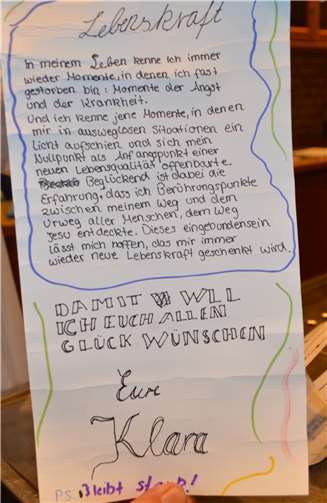 Lebenskraft
In meinem Leben kenne ich immer
wieder Momente, in denen ich fast
gestorben bin: Momente der Angst
und der Krankheit.
Und ich kenne jene Momente, in denen
mir in ausweglosen Situationen ein
Licht aufschien und sich mein
Nullpunkt als Anfangspunkt einer
neuen Lebensqualität offenbarte.
Beglückend ist dabei die
Erfahrung, dass ich Berührungspunkte
zwischen meinem Weg und dem
Urweg aller Menschen, dem Weg
Jesu entdeckte. Dieses eingebundensein
lässt mich hoffen, das mir immer
wieder neue Lebenskraft geschenkt wird.
DAMIT WILL
ICH EUCH ALLEN
GLÜCK WÜNSCHEN
Eure
Klara
P.S. Bleibt stark!